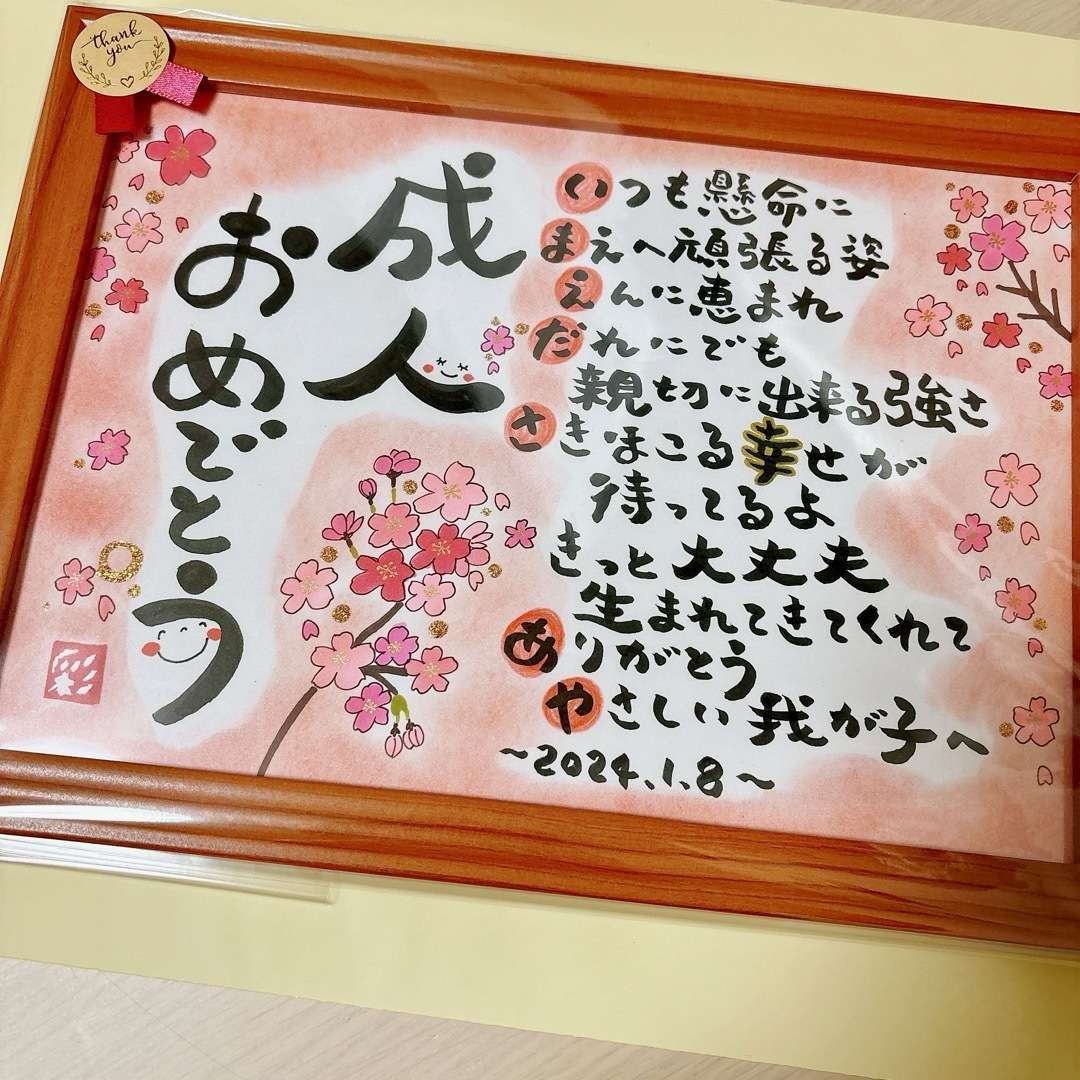 thank
you
成人
おめでとう
いつも懸命に
まえへ頑張る姿
えんに恵まれ
だれにでも
親切に出来る強さ
さきほこる幸せが
待ってるよ
きっと大丈夫
生まれてきてくれて
ありがとう
やさしい我が子へ
~2024.1.8~